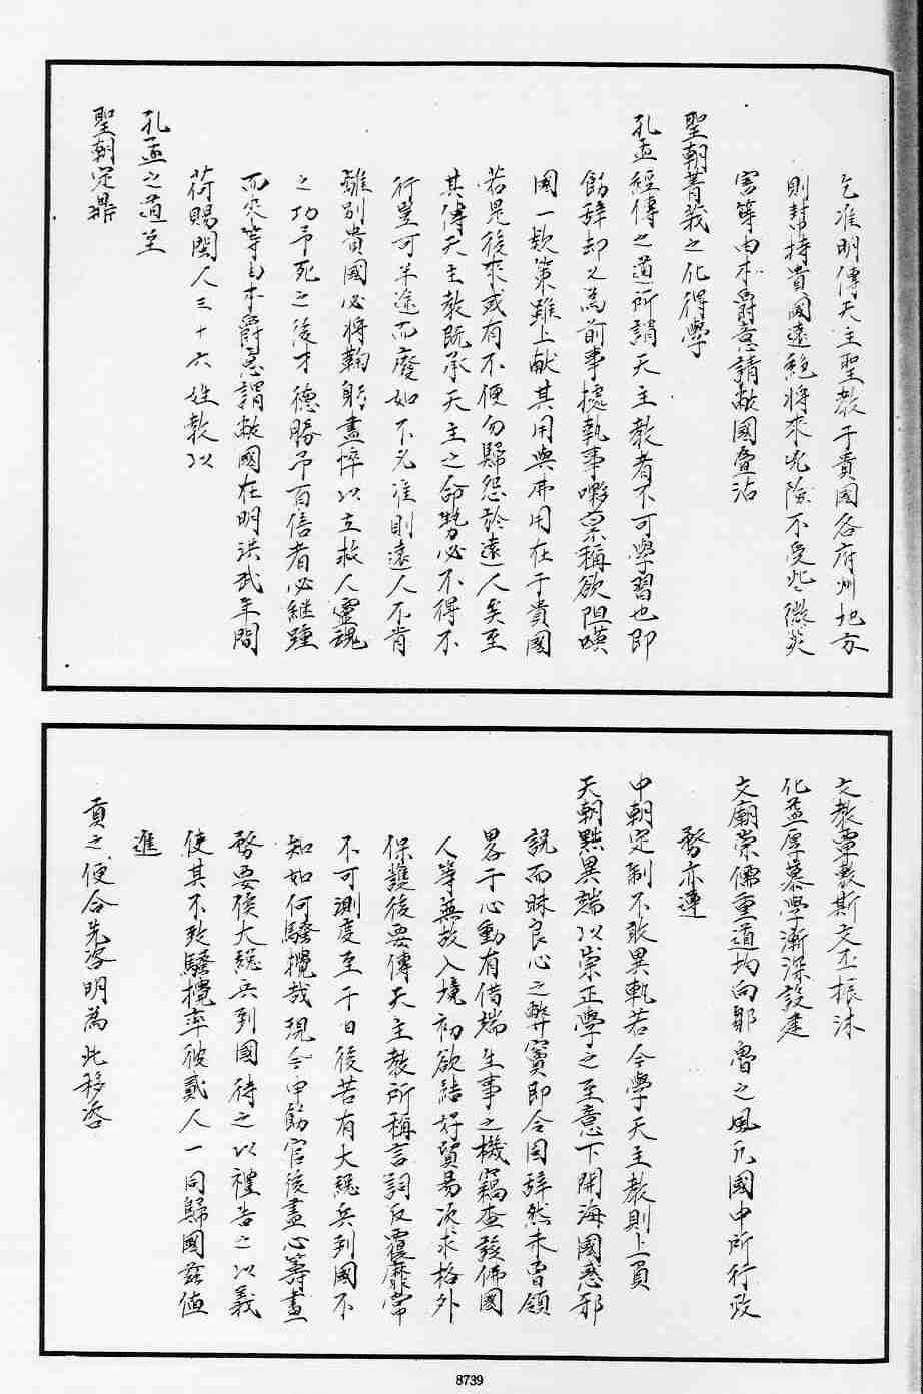 乞准明傳天主聖教于貴國各府州地方
則幇持貴國遠絶將來光險不受些微災
害等由本爵意請敝國疊沾
聖朝菁莪之化得學
孔孟經傳之道所謂天主教者不可學習也即
飭辞却又為前事據執事喇禀稱欲阻暎
國一欵策雖上献其用與弗用在于貴國
若是後來或有不便勿歸怨於遠人矣至
其傳天主教既承天主之命勢必不得不
行豈可半途而廢如不允准則遠人不肯
離别貴國必將鞠躬盡悴以立救人靈魂
之功予死之後才德勝予百倍者必継踵
而來等由本爵意謂敝國在明洪武年間
荷賜閩人三十六姓教以
孔孟之道至
聖朝定鼎
文教覃敷斯文丕振沐
化益厚慕學漸深設建
文廟崇儒重道均向鄒魯之風凡國中所行政
務亦遵
中朝定制不敢異軌若今學天主教則上負
天朝黜異端以崇正學之至意下開海國惑邪
説而昧良心之弊竇即令固辞然未曾領
畧于心動有借端生事之機竊查發佛國
人等無故入境初欲結好貿易次求格外
保護後要傳天主教所稱言詞反覆靡常
不可測度至于日後若有大総兵到國不
知如何騷擾哉現今申飭官後盡心籌畫
務要俟大総兵到國待之以禮告之以義
使其不致騷擾率彼貳人一同歸國茲值
進
貢之便合先咨明為此移咨
8739